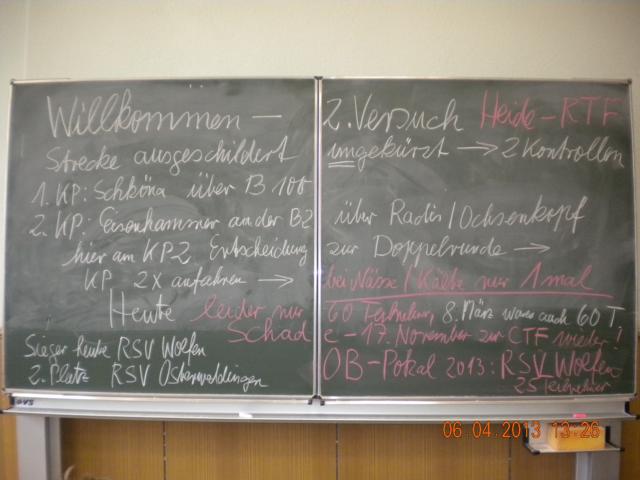 Willkommen – 2. Versuch Heide-RTF
Strecke ausgeschildert umgekürzt → 2 Kontrollen
1. KP: Schköna über B 100
2. KP: Eisenhammer an der B2 über Radis/Ochsenkopf
hier am KP2 Entscheidung zur Doppelrunde →
KP 2x anfahren → bei Nässe/Kälte nur 1 mal
Heute leider nur 60 Teilnehmer, 8. März waren auch 60 T
Schade - 17. November zur CTF wieder!
Sieger heute RSV Wolfen OB-Pokal 2013: RSV Wolfen
2. Platz RSV Osterweddingen 25 Teilnehmer
06.04.2013 13:26